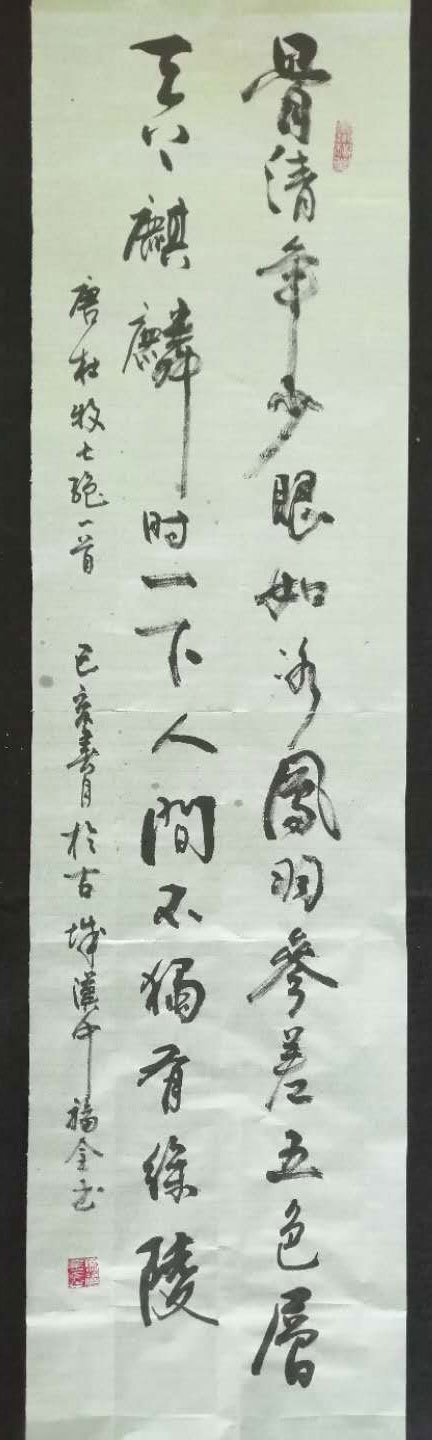 骨清年少眼如冰鳳羽參差五色層
天上麒麟时一下人間不獨有徐陵
唐杜牧七絕一首 己亥春月於古城漢中福全书